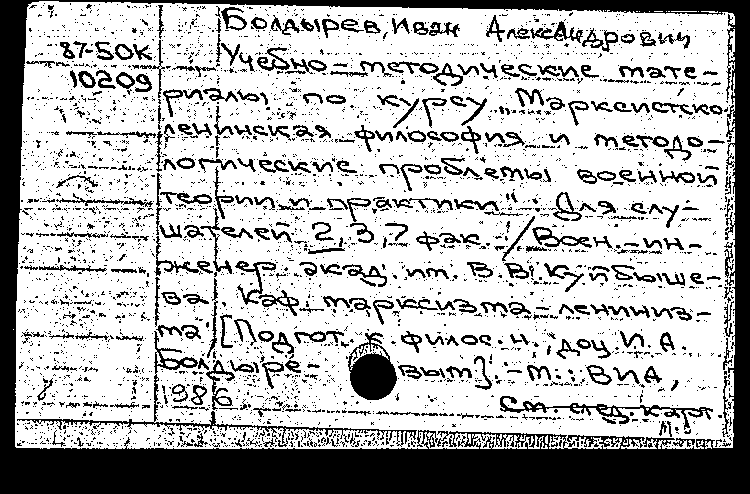 Болдырев, Иван Александрович
87-50К
10209
Учебно-методические мате-
риалы по курсу „Марксистско-
ленинская философия и методо-
логические проблемы военной
теории и практики": Для слу-
шателей 2, 3, 7 фак. / Воен.-ин-
женер. акад. им. В.В. Куйбыше-
ва. Каф. марксизма-лениниз-
ма; [Подгот. к. филос. н., доц. И.А.
Болдыре- вым]. - М.: ВИА,
1986
См. след. карт.